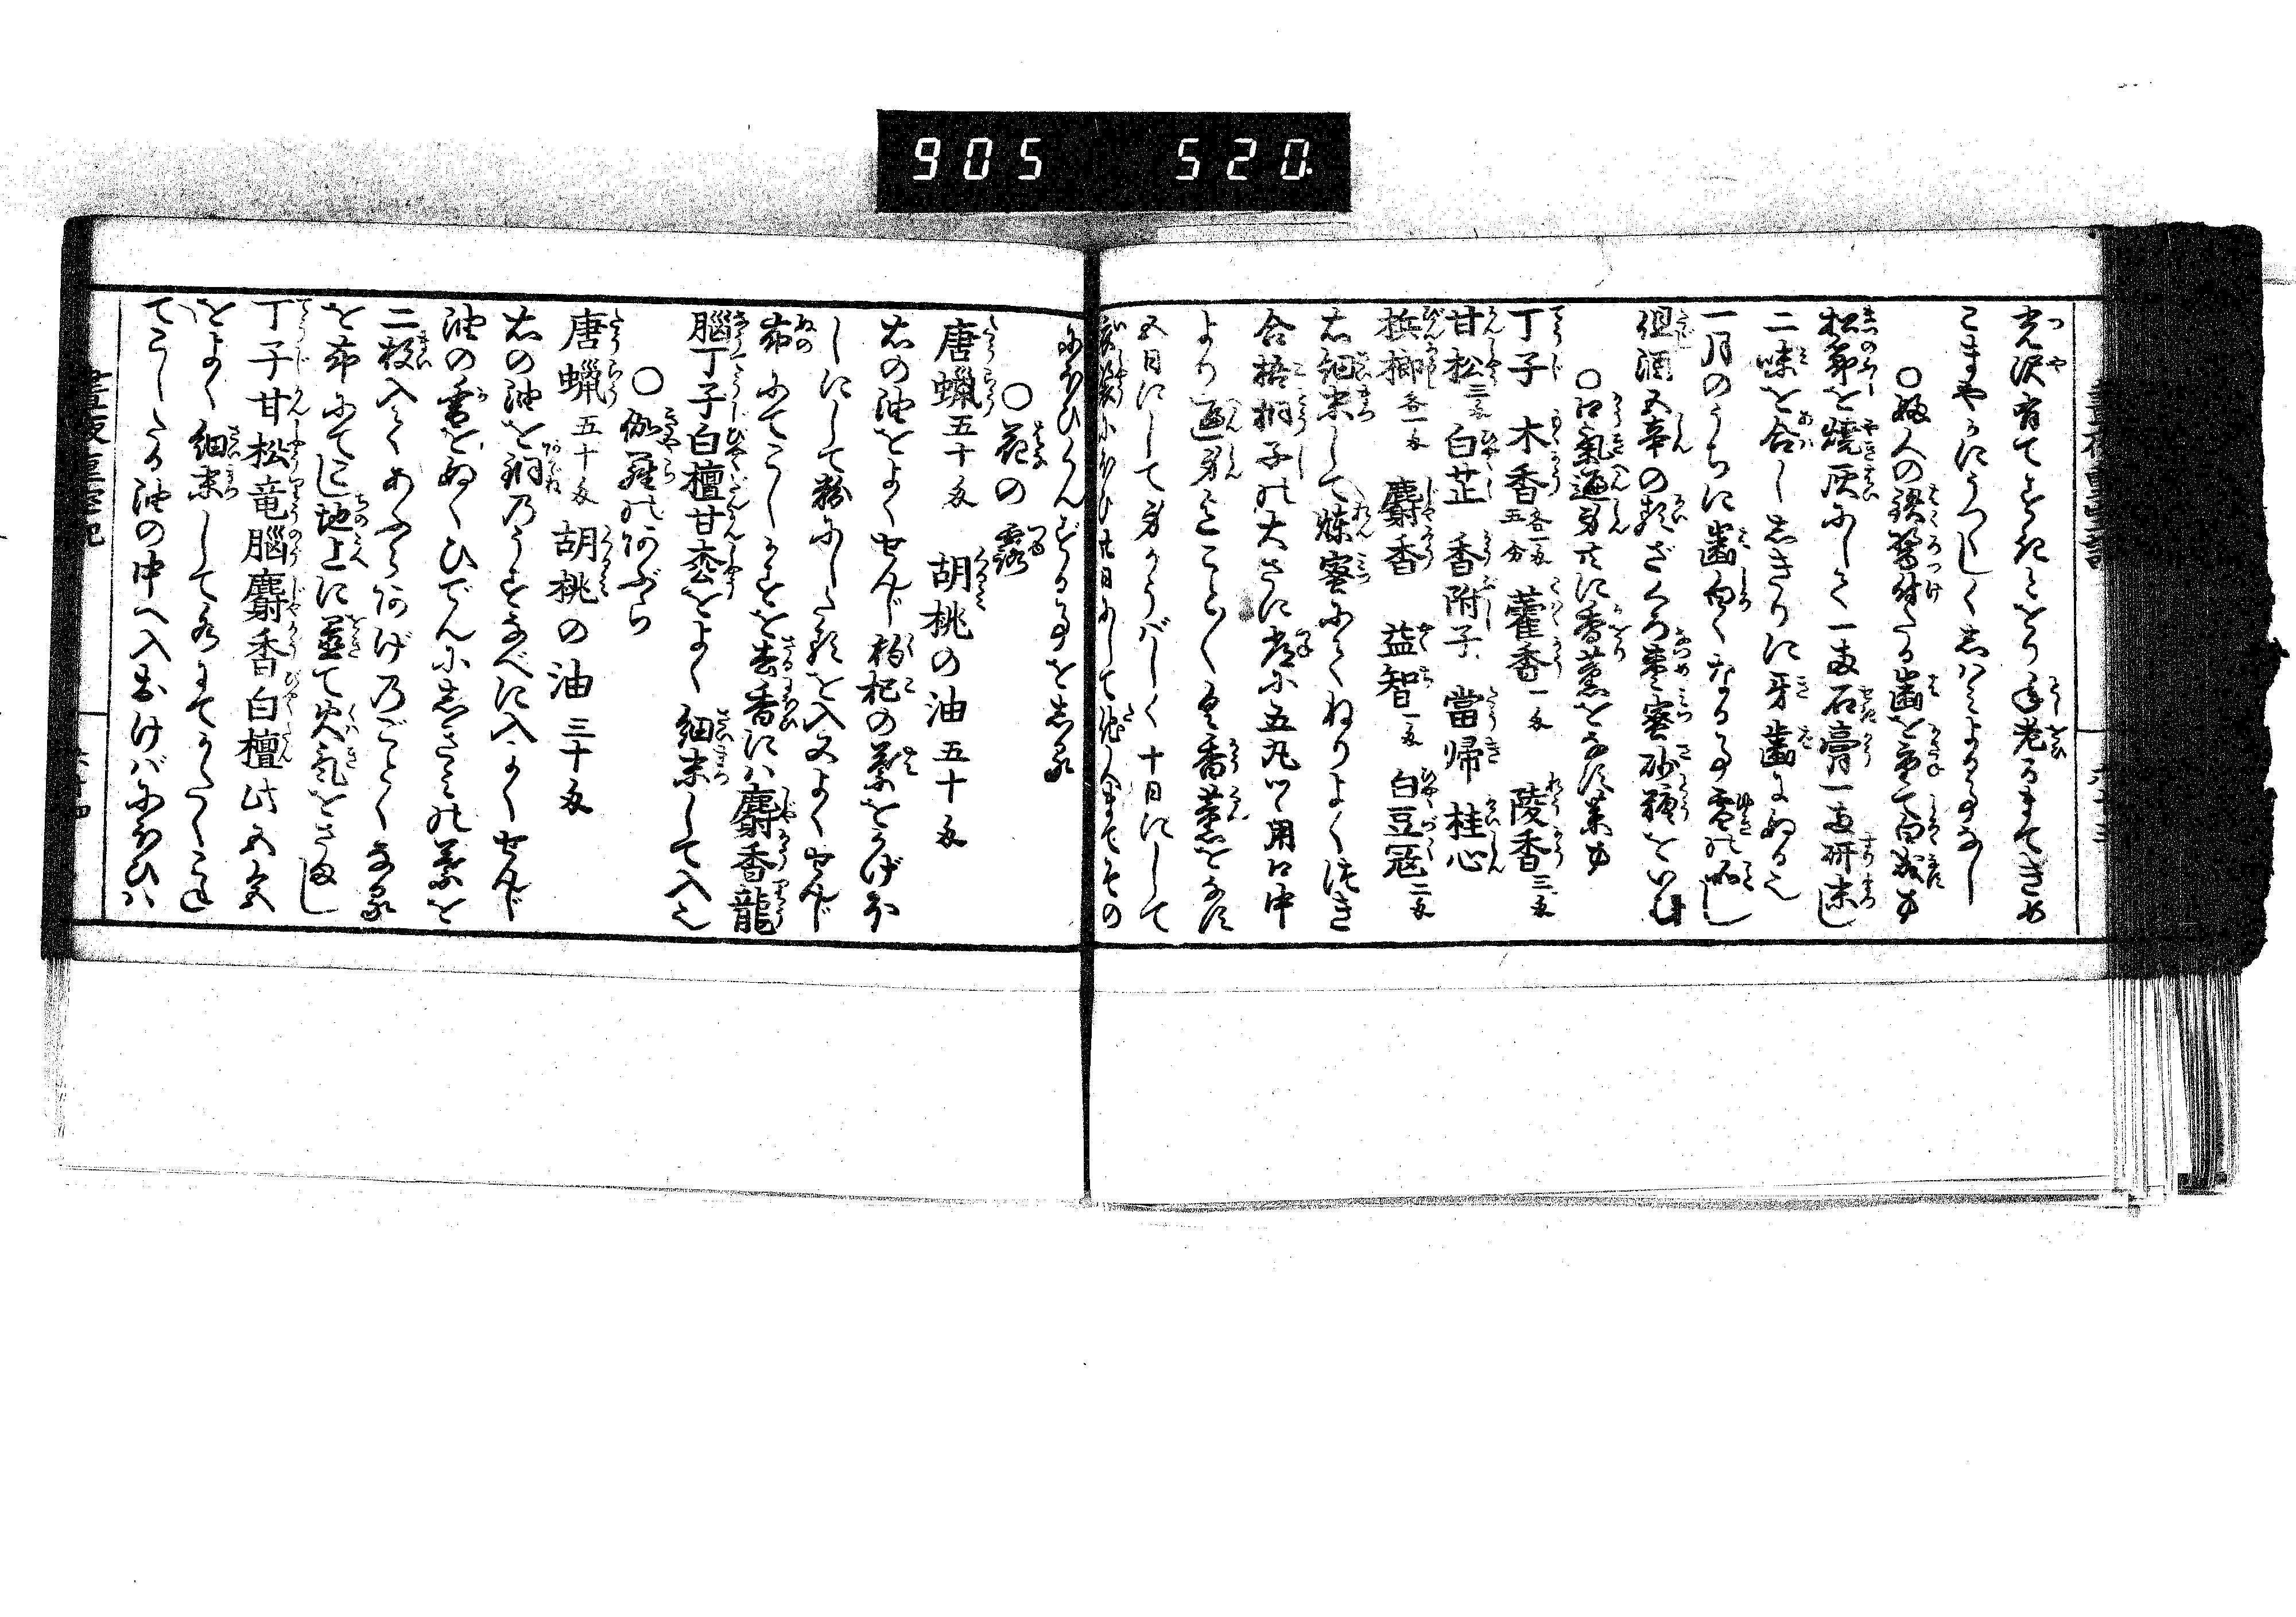 905 520
光沢有てうすれとをり年老るまてきめ
こまやかにうつくしくしはみよることなし
○婦人の鉄漿付たる歯を重て白歯にする方
松の節を焼灰にして一両石膏一両研末し
二味を合しあきりに牙歯にぬる也
一月のうちに歯白くなる事雪の如し
但酒五辛の類ざくろ棗蜜砂糖をいむ
○口気遍身共に香薫をなす薬方
丁子 木香各一匁五分 藿香一匁 陵香三匁
甘松三匁 白芷 香附子 當帰 桂心
檳榔各一匁 麝香 益智一匁 白豆寇二匁
右細末して煉蜜にてねりよくつき
合梧桐子の大さに常に五丸ツヽ用口中
より遍身ことごとく皆香薫をなす
五日にして身かうばしく十日にして
衣裳にほひ廿日にして他人までその
にほひくんずる事をしる
○花の露
唐蝋五十匁 胡桃の油五十匁
右の油をよくせんじ枸杞の葉をかげほ
しにして粉にしたるを入又よくせんじ
布にてこしかすを去香には麝香龍
脳丁子白檀甘松をよく細末して入也
○伽羅のあぶら
唐蝋五十匁 胡桃の油三十匁
右の油を銅のうすなべに入よくせんじ
油の雪をぬくひでんにしきみの葉を
二枚入てあぶらあげのごとくなる
を布にてこし地上に置て火気をさまし
丁子甘松竜脳麝香白檀此五又
をよく細末して
てこしたる油の中へ入おけばにほひハ